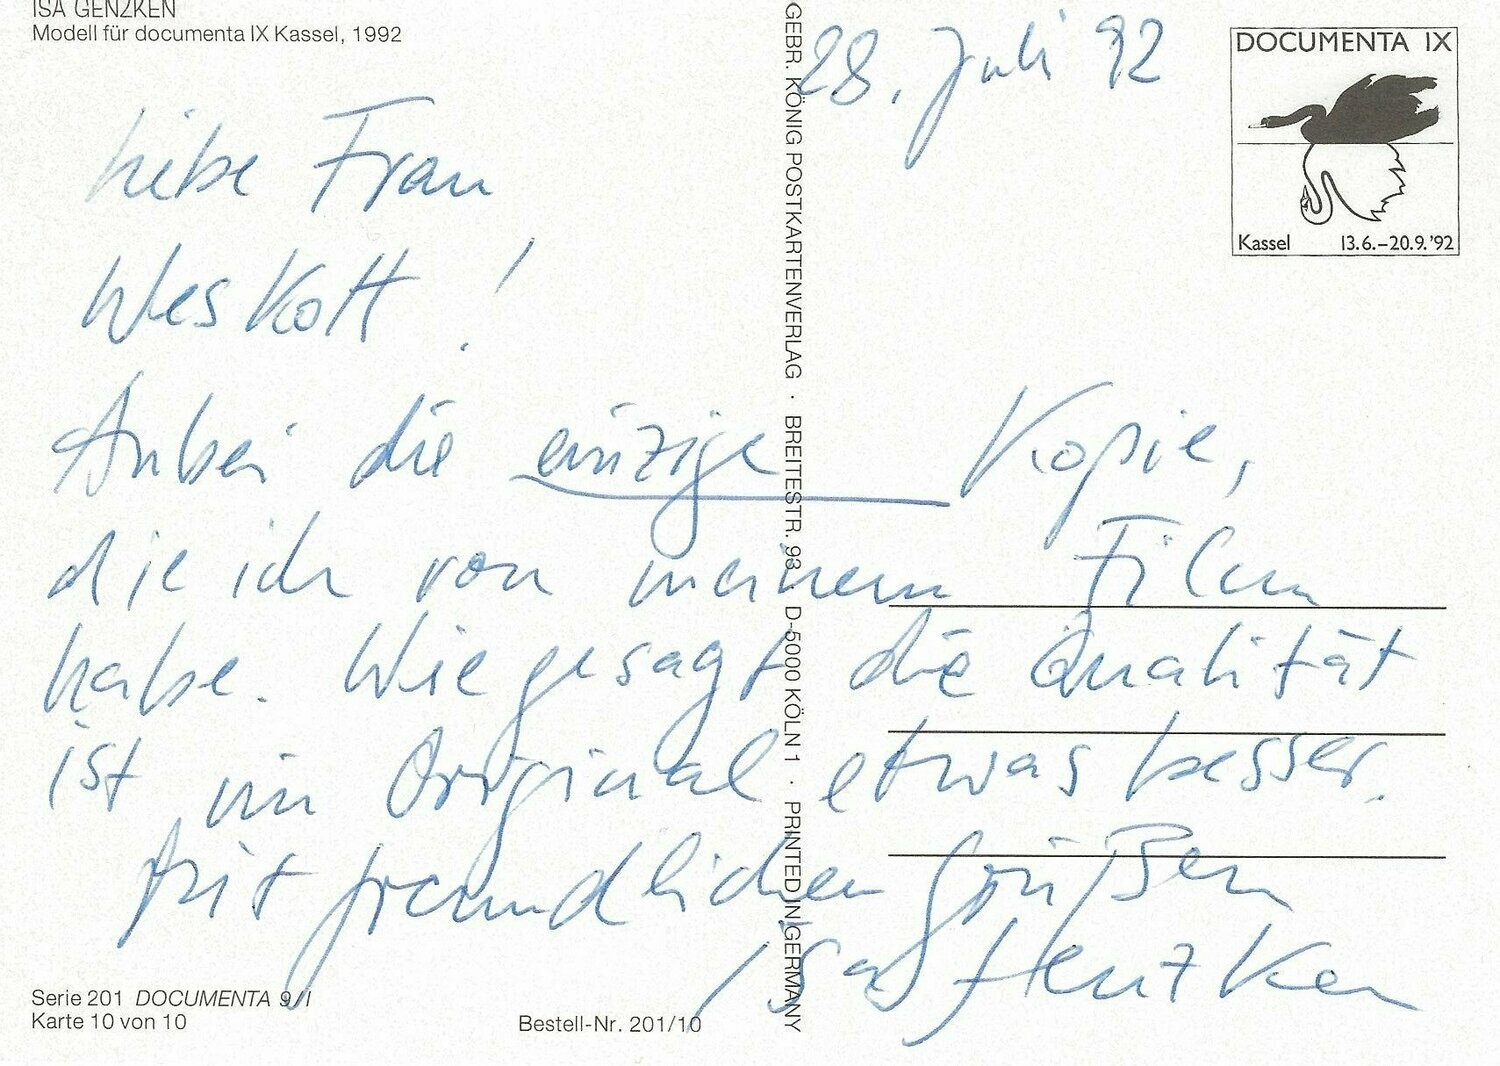 ISA GENZKEN
Modell für documenta IX Kassel, 1992
28. Juli 92
DOCUMENTA IX
Kassel 13.6.–20.9.'92
Liebe Frau
Weskott!
Anbei die einzige Kopie,
die ich von meinem Film
habe. Wie gesagt die Qualität
ist im Original etwas besser.
Mit freundlichen Grüßen
Isa Genzken
GEBR. KÖNIG POSTKARTENVERLAG · BREITESTR. 93 · D-5000 KÖLN 1 · PRINTED IN GERMANY
Serie 201 DOCUMENTA 9/I
Karte 10 von 10
Bestell-Nr. 201/10